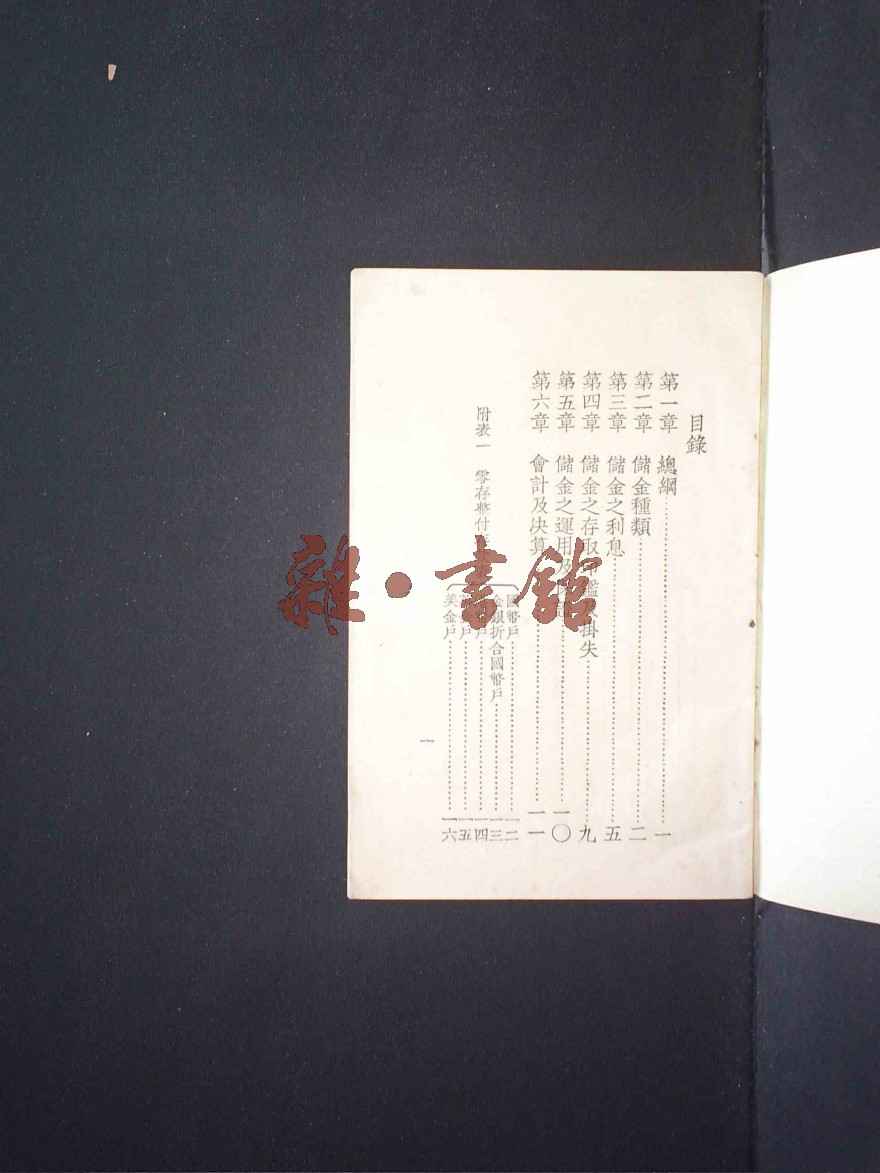 目錄
第一章 總綱 一
第二章 儲金種類 二
第三章 儲金之利息 五
第四章 儲金之存取 掛失 九
第五章 儲金之運用及 一〇
第六章 會計及决算 一一
附表一 零存整付
國幣戶 一二
銀折合國幣戶 一三
戶 一四
戶 一五
美金戶 一六
一
雜·書館